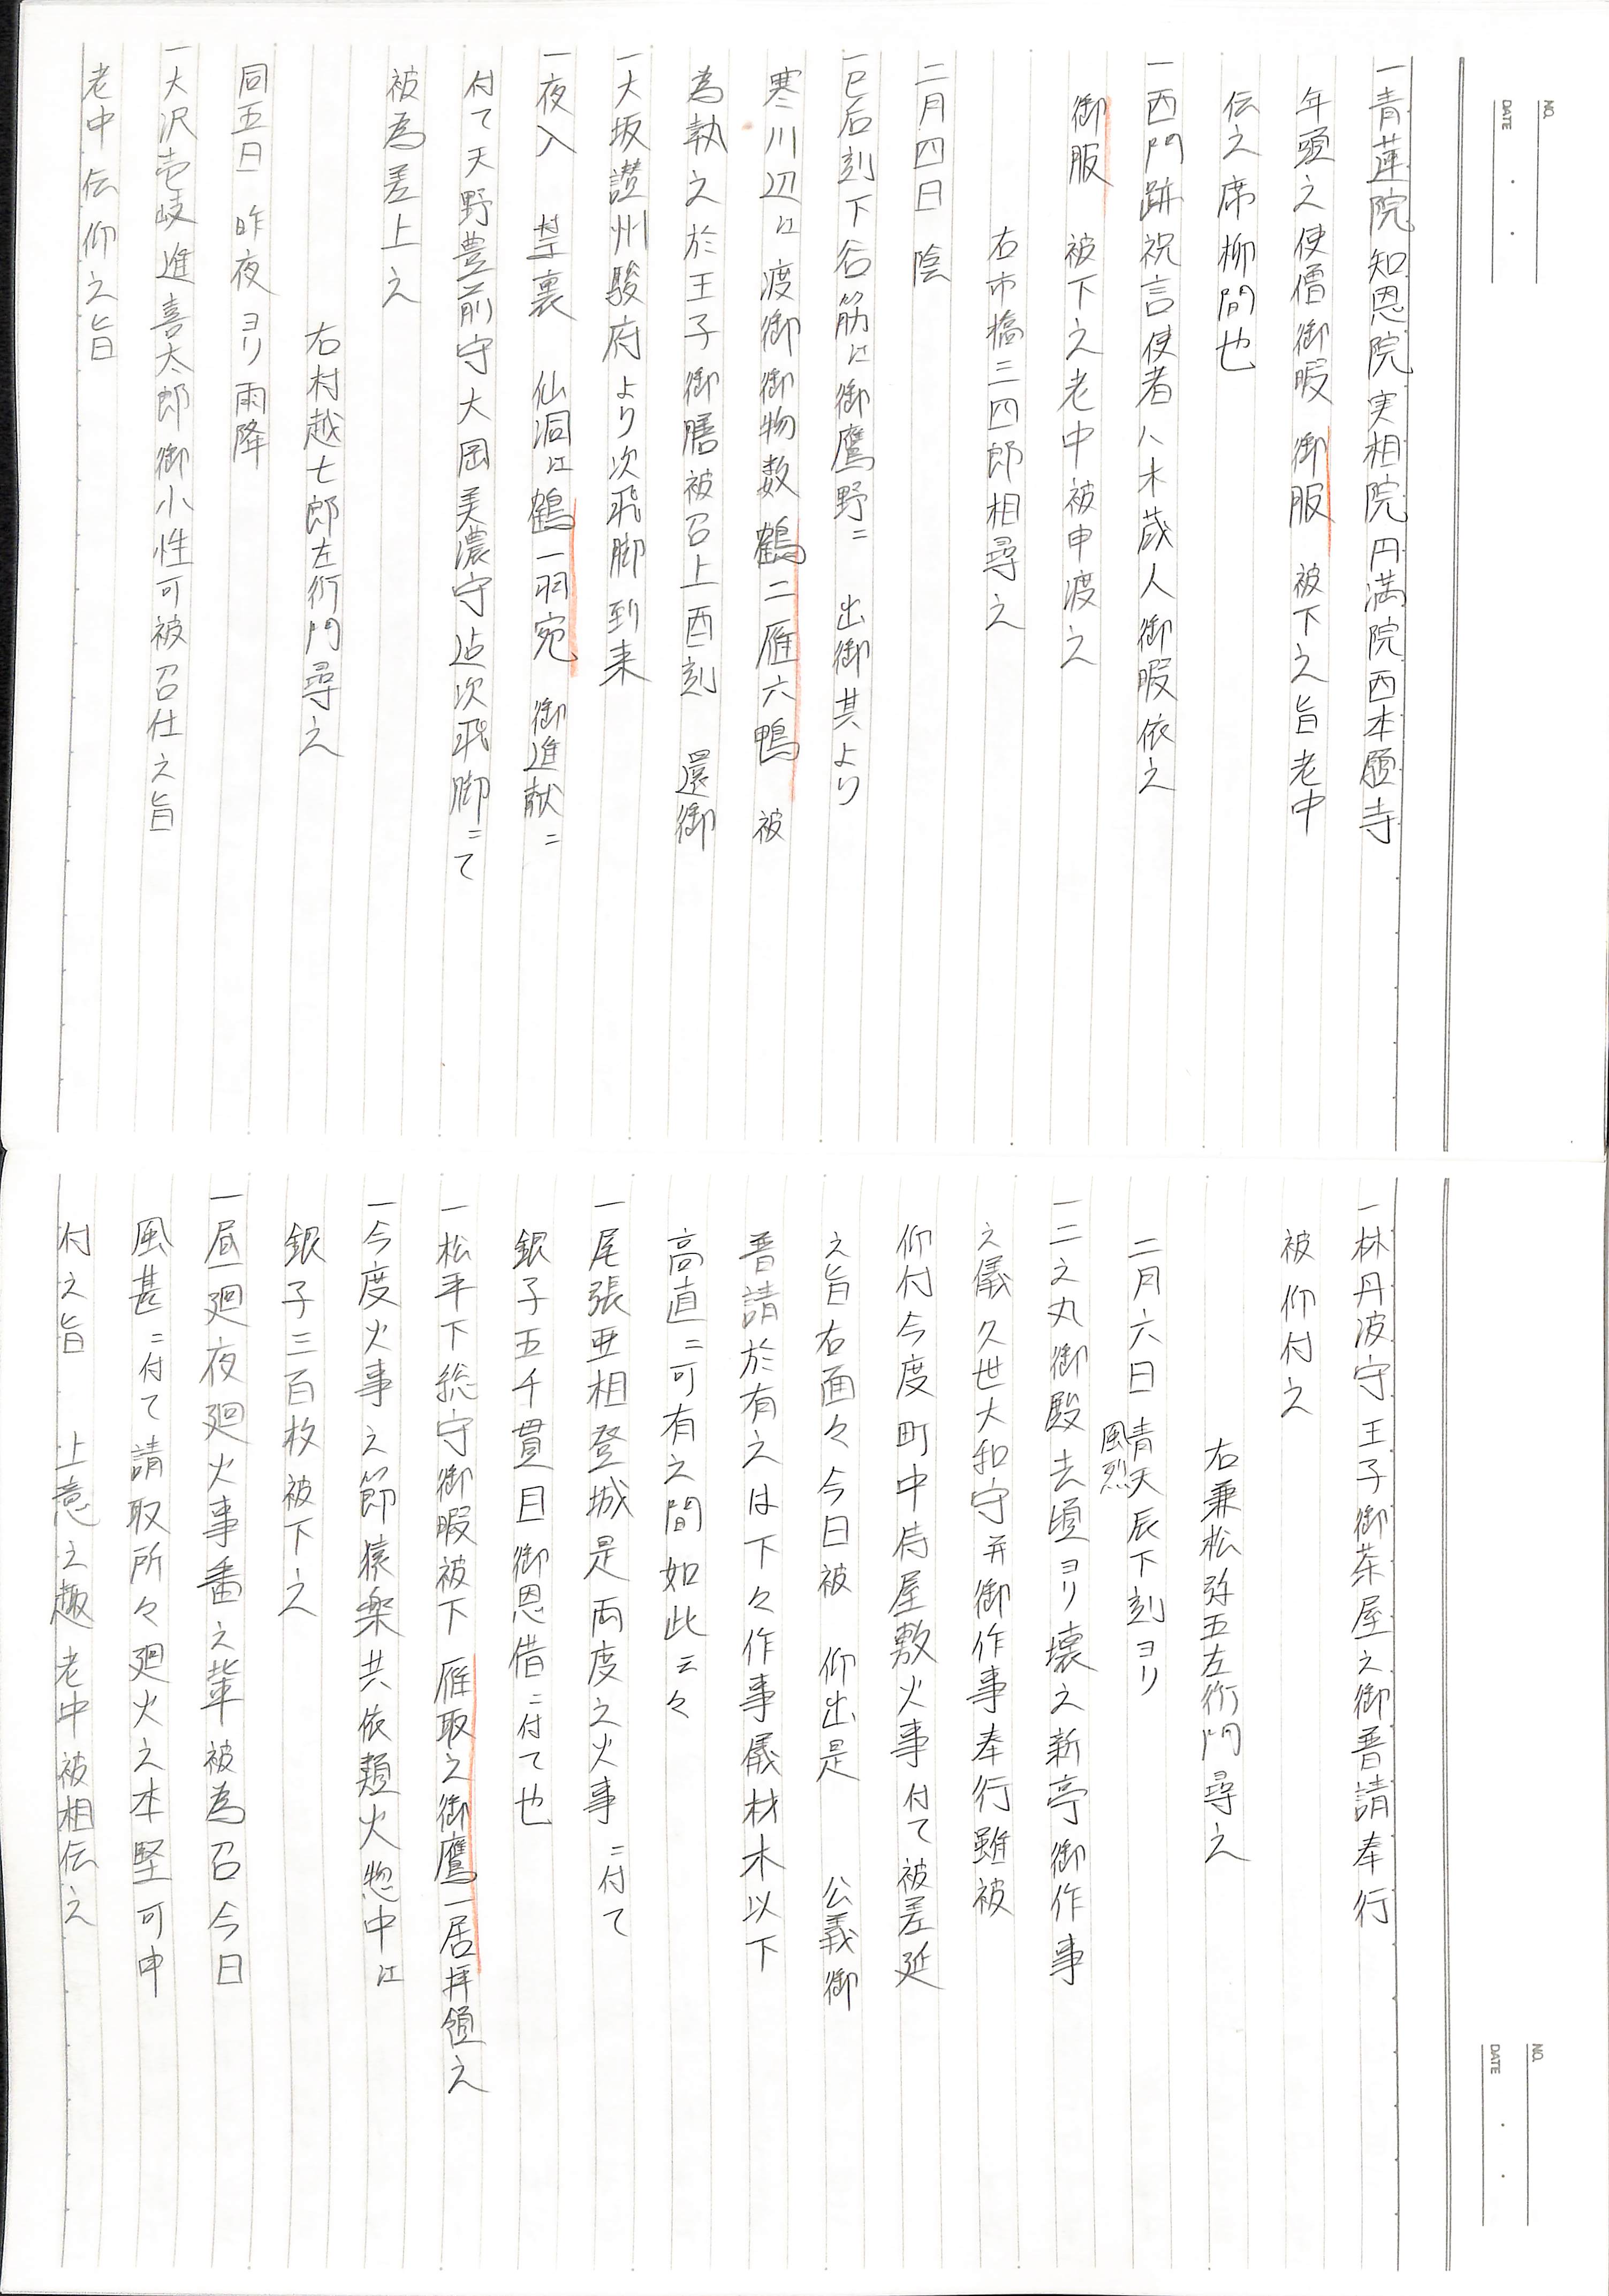 NO.
DATE
一青蓮院知恩院実相院円満院西本願寺
年頭之使僧御暇 御服 被下之旨老中
伝之席柳間也
一西門跡祝言使者八木蔵人御暇依之
御服 被下之老中被申渡之
右市橋三四郎相尋之
二月四日 陰
一巳后刻下谷筋江御鷹野ニ 出御其より
寒川辺江渡御御物数鶴二雁六鴨 被
為執之於王子御膳被召上酉刻 還御
一大坂讃州駿府より次飛脚到来
一夜入 禁裏 仙洞江鶴一羽宛 御進献ニ
付て天野豊前守大岡美濃守迠次飛脚ニて
被為差上之
右村越七郎左衛門尋之
同五日 昨夜ヨリ雨降
一大沢壱岐進喜太郎御小性可被召仕之旨
老中伝仰之旨
NO.
DATE
一林丹波守王子御茶屋之御普請奉行
被仰付之
右兼松弥五左衛門尋之
二月六日 青天辰下刻ヨリ
風烈
一二之丸御殿去頃ヨリ壊之新亭御作事
之儀久世大和守并御作事奉行雖被
仰付今度町中侍屋敷火事付て被差延
之旨右面々今日被 仰出是 公義御
普請於有之は下々作事儀材木以下
高直ニ可有之間如此云々
一尾張亜相登城是両度之火事ニ付て
銀子五千貫目御恩借ニ付て也
一松平下総守御暇被下雁取之御鷹一居拝領之
一今度火事之節猿楽共依類火惣中江
銀子三百枚被下之
一昼廻夜廻火事番之輩被為召今日
風甚ニ付て請取所々廻火之本堅可申
付之旨 上意之趣老中被相伝之